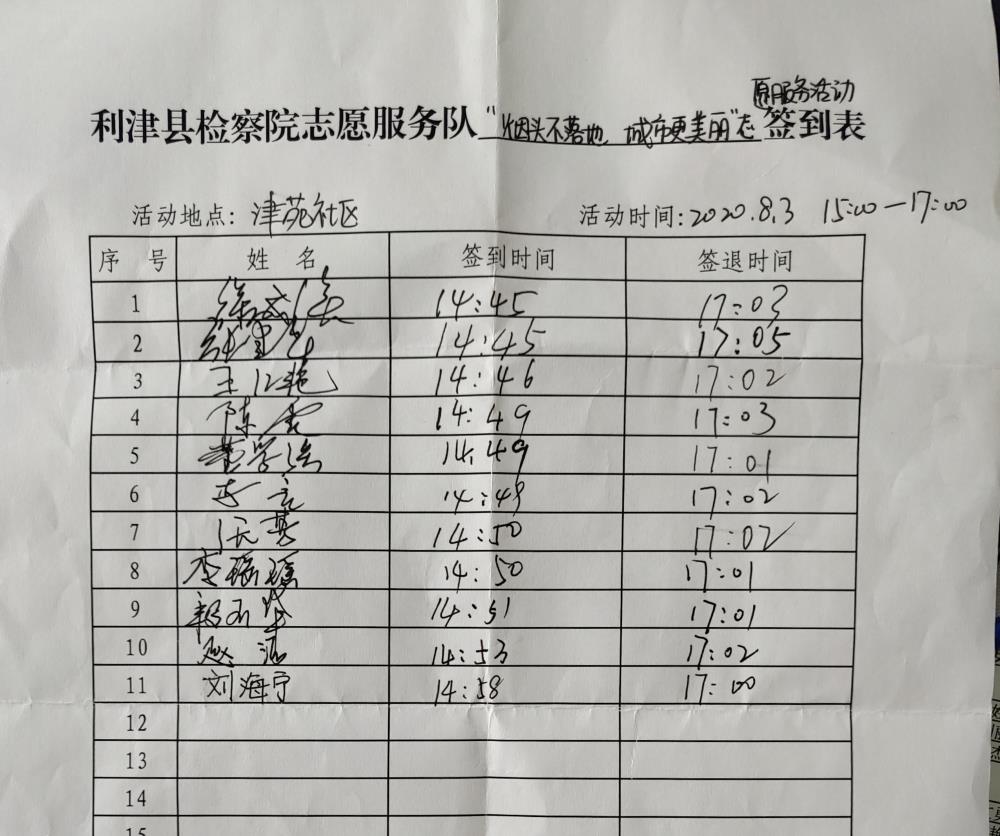 愿服务活动
利津县检察院志愿服务队"烟头不落地 城市更美丽"志签到表
活动地点：津苑社区 活动时间：2020.8.3 15:00—17:00
序号 姓名 签到时间 签退时间
1 14:45 17:03
2 14:45 17:05
3 王 艳 14:46 17:02
4 陈 14:49 17:03
5 14:49 17:01
6 14:49 17:02
7 14:50 17:02
8 李 14:50 17:01
9 14:51 17:01
10 赵 14:53 17:02
11 刘海宁 14:58 17:00
12
13
14
15